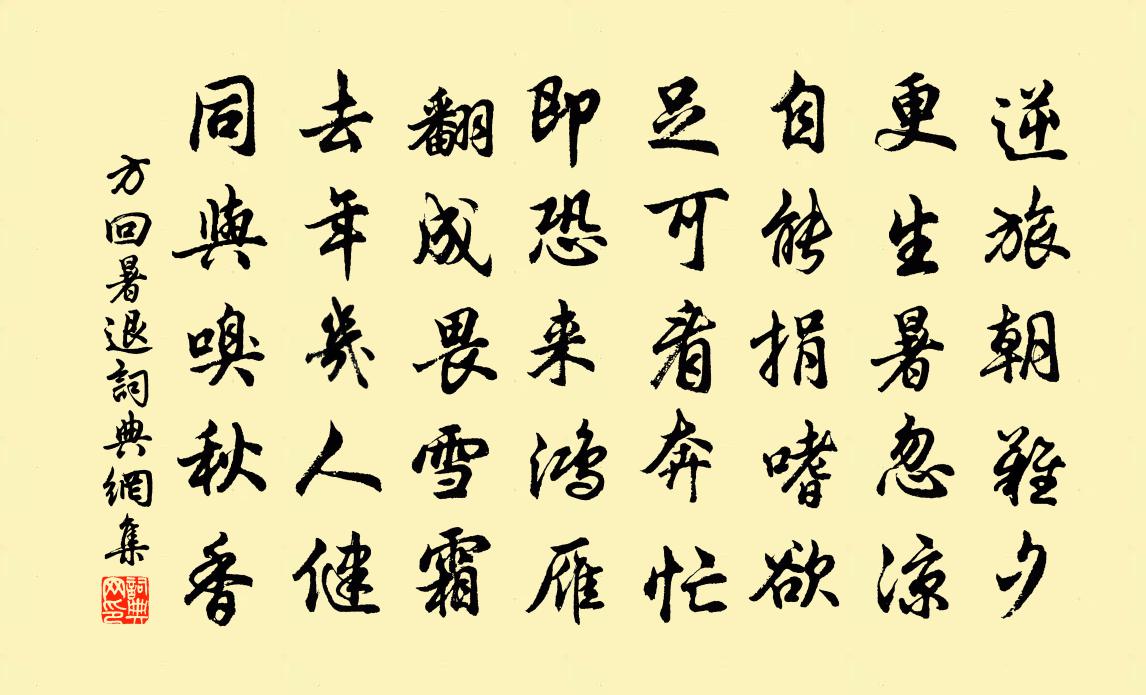 逆旅朝難夕
更生暑忽涼
自能捐嗜欲
足可看奔忙
即恐来鴻雁
翻成畏雪霜
去年幾人健
同與嗅秋香
方回暑退詞典網集
詞典網印